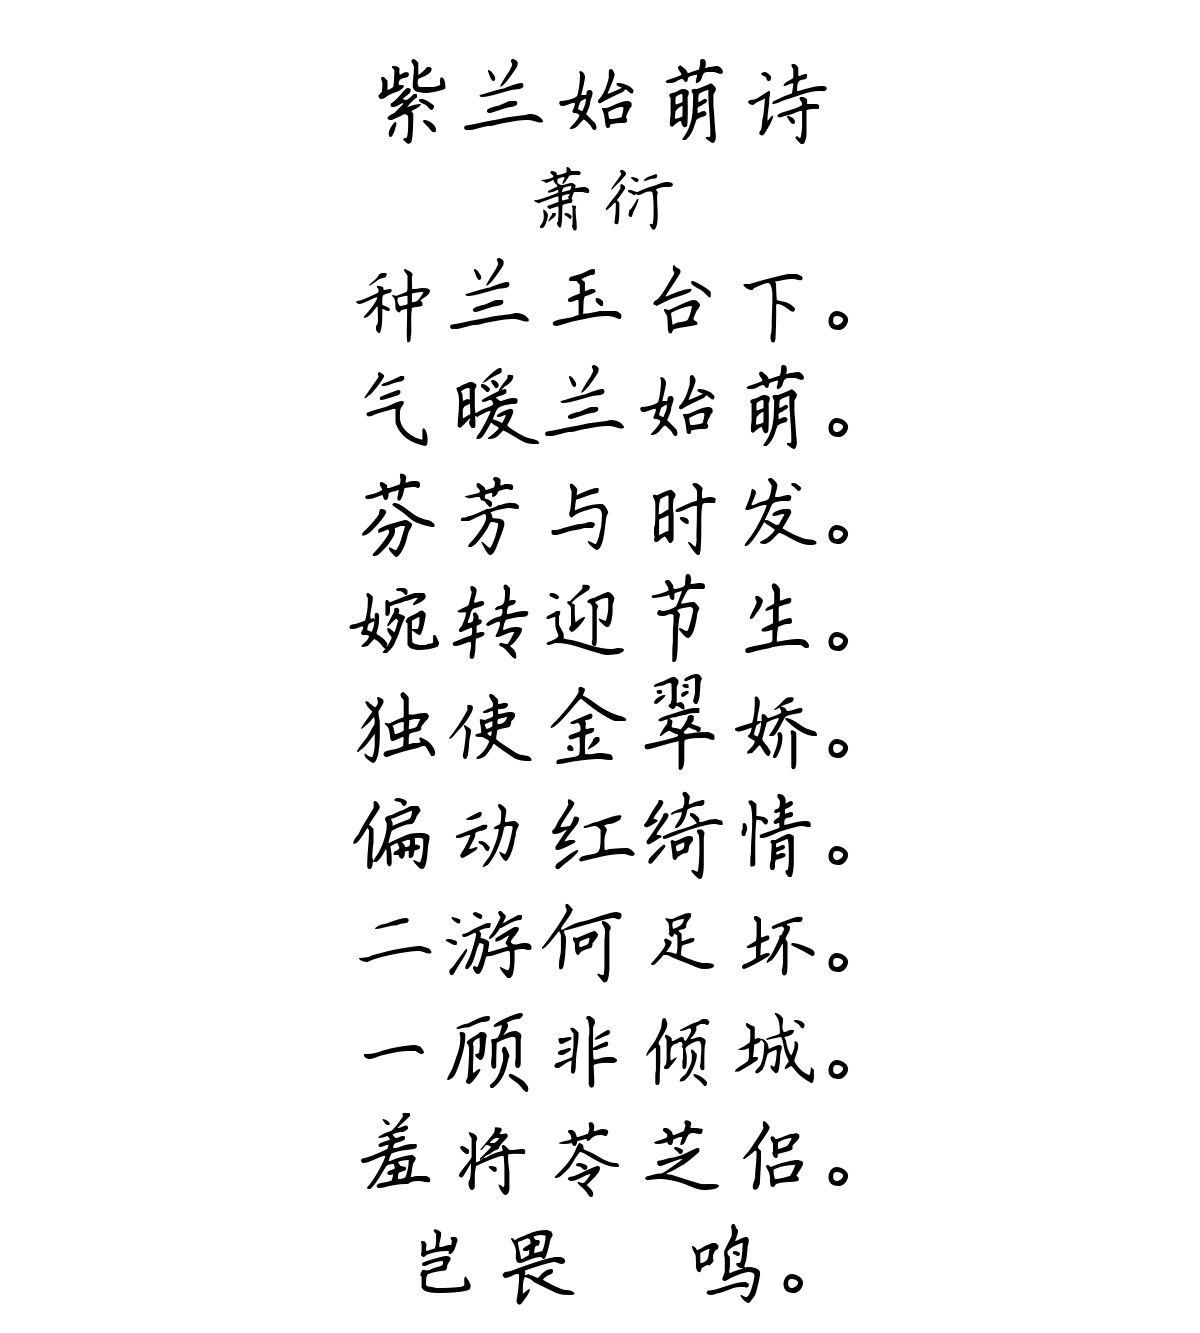 紫兰始萌诗
萧衍
种兰玉台下。
气暖兰始萌。
芬芳与时发。
婉转迎节生。
独使金翠娇。
偏动红绮情。
二游何足坏。
一顾非倾城。
羞将苓芝侣。
岂畏 鸣。